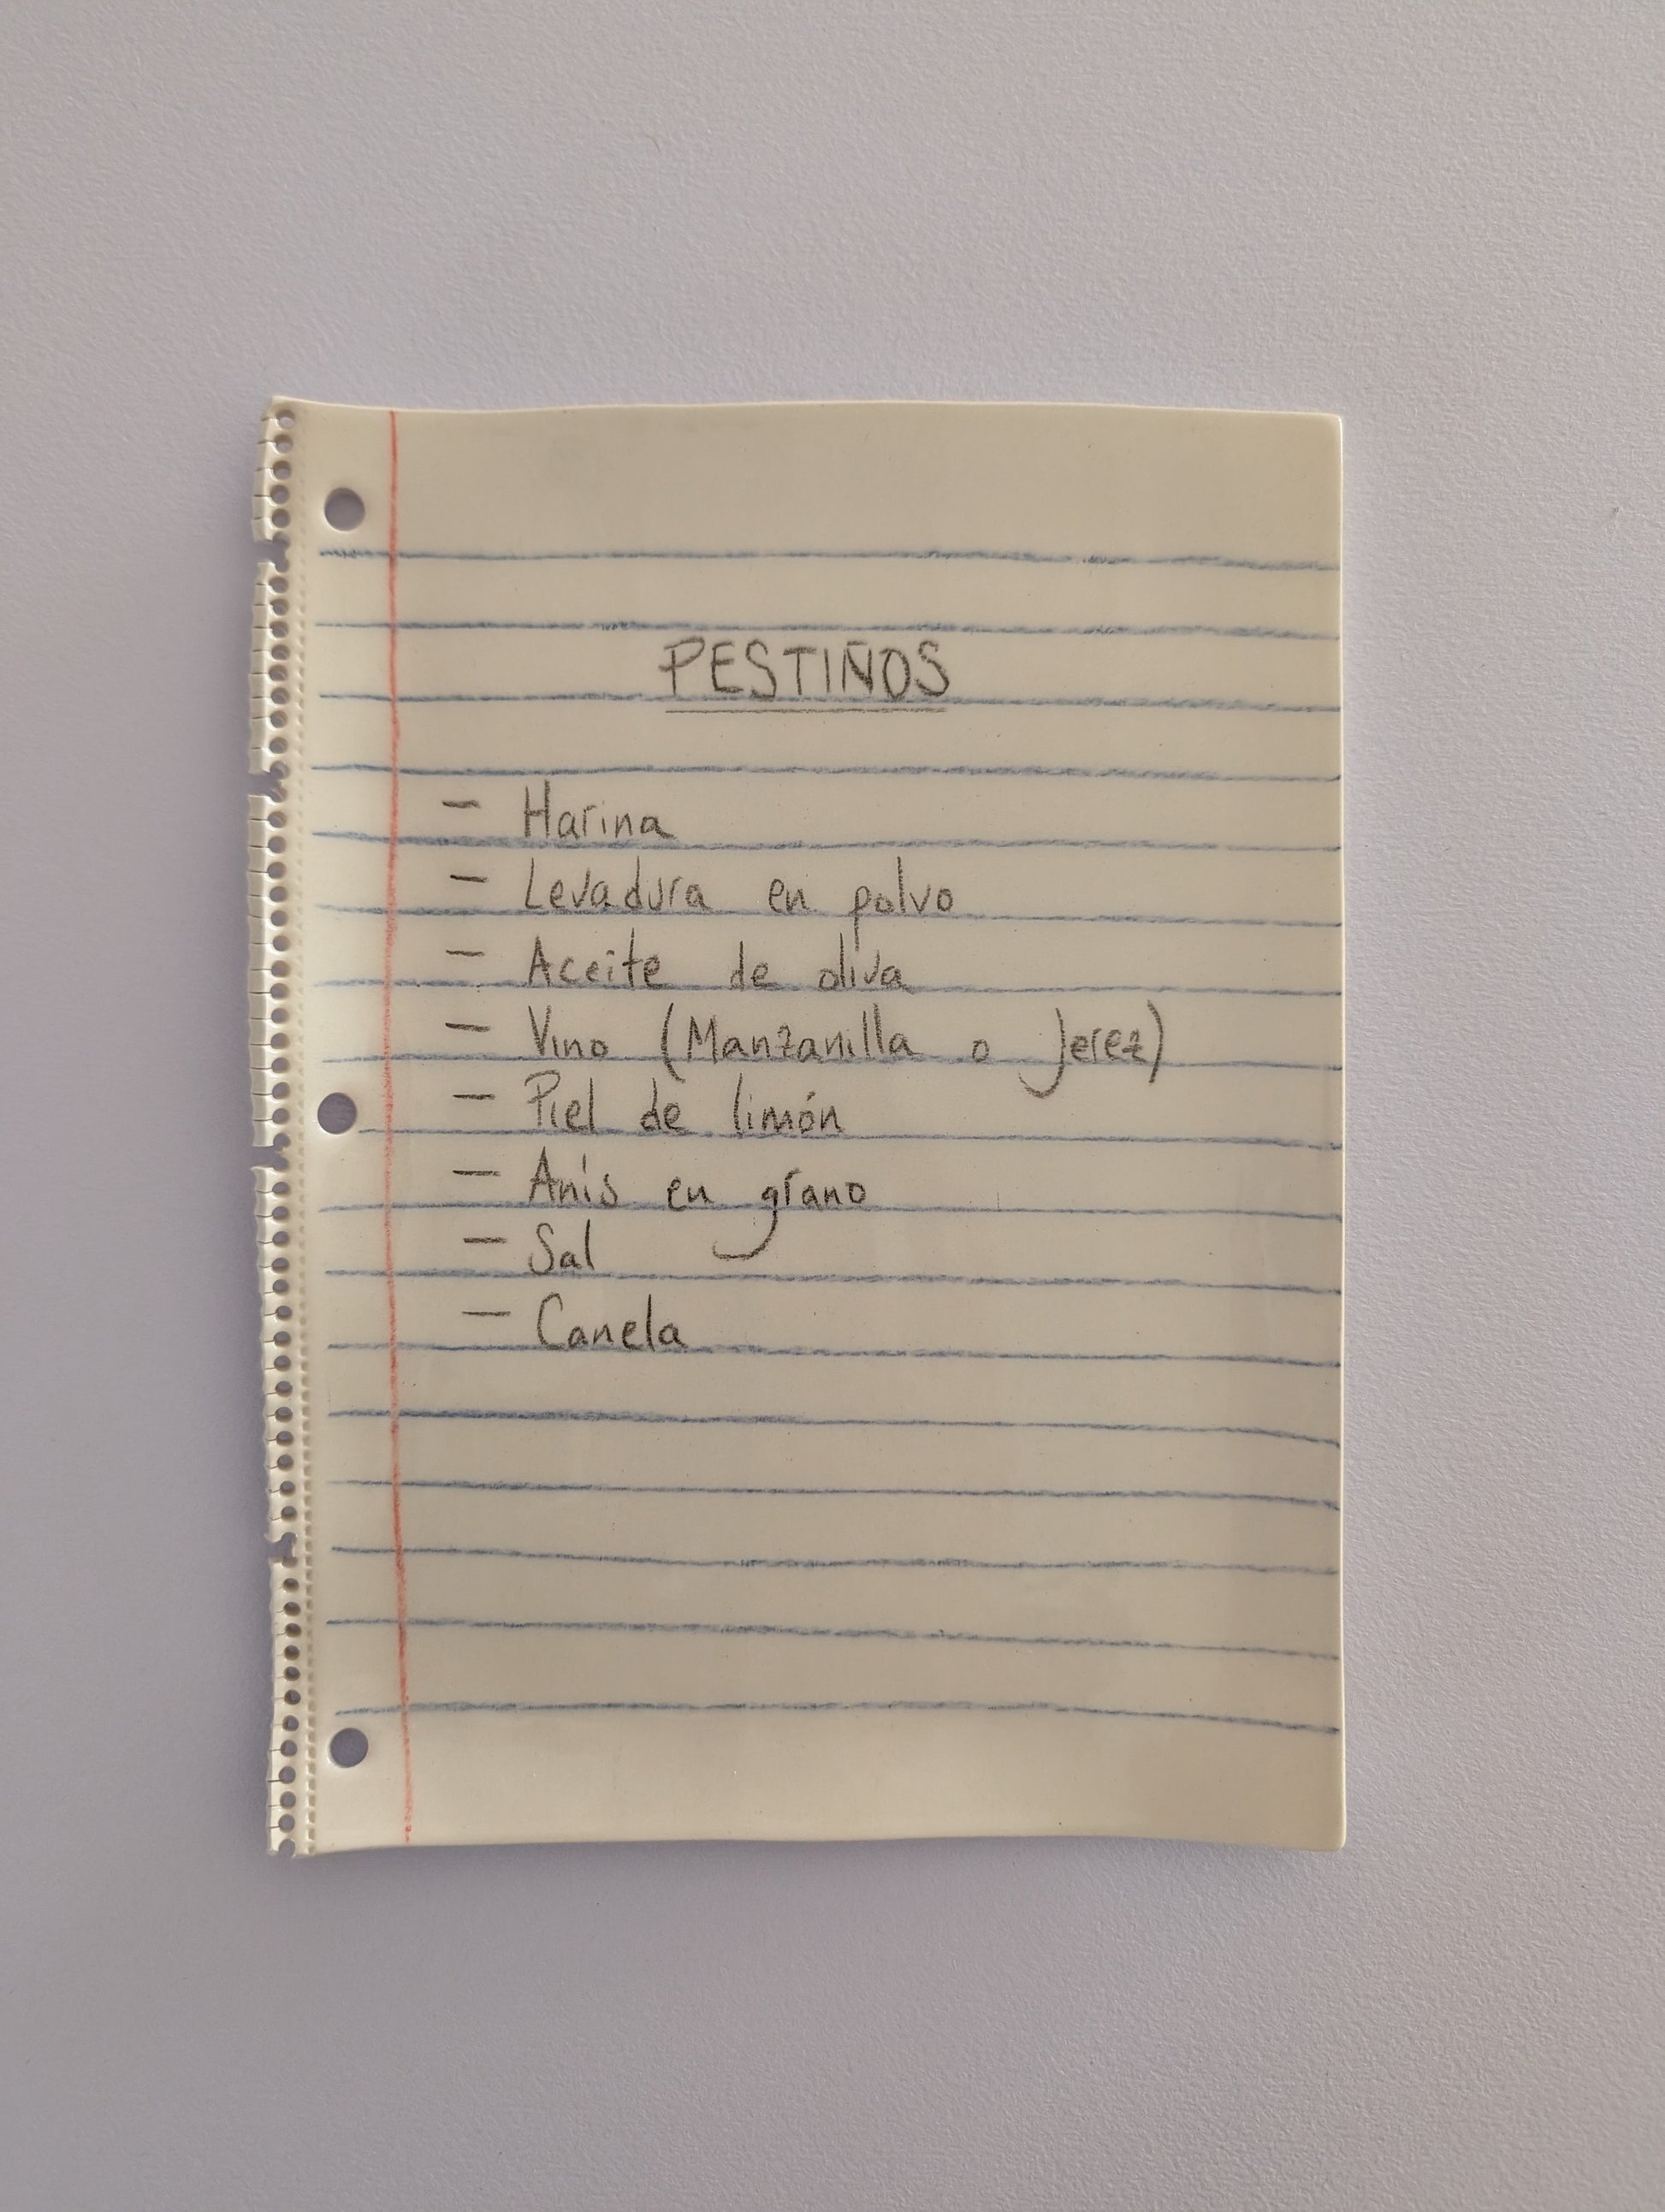 PESTIÑOS
- Harina
- Levadura en polvo
- Aceite de oliva
- Vino (Manzanilla o Jerez)
- Piel de limón
- Anís en grano
- Sal
- Canela